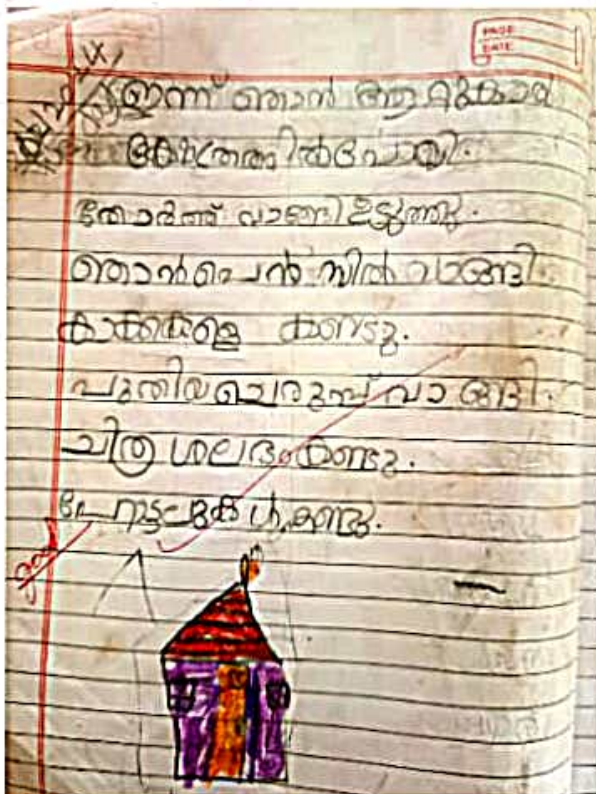 PAGE
DATE
ഇന്ന് ഞാൻ ആറ്റുകാൽ
ക്ഷേത്രത്തിൽ പോയി.
തോർത്ത് വാങ്ങി ഉടുത്തു.
ഞാൻ പെൻസിൽ വാങ്ങി.
കാക്കകളെ കണ്ടു.
പുതിയ ചെരുപ്പ് വാങ്ങി.
ചിത്ര ശലഭം കണ്ടു.
കണ്ടു.